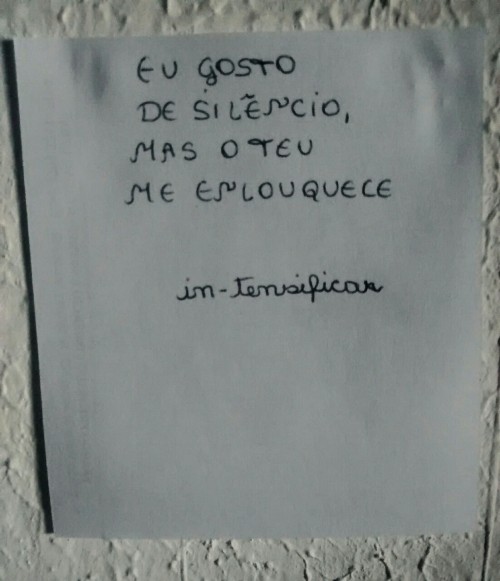 EU GOSTO
DE SILÊNCIO,
MAS O TEU
ME ENLOUQUECE
in-tensificar